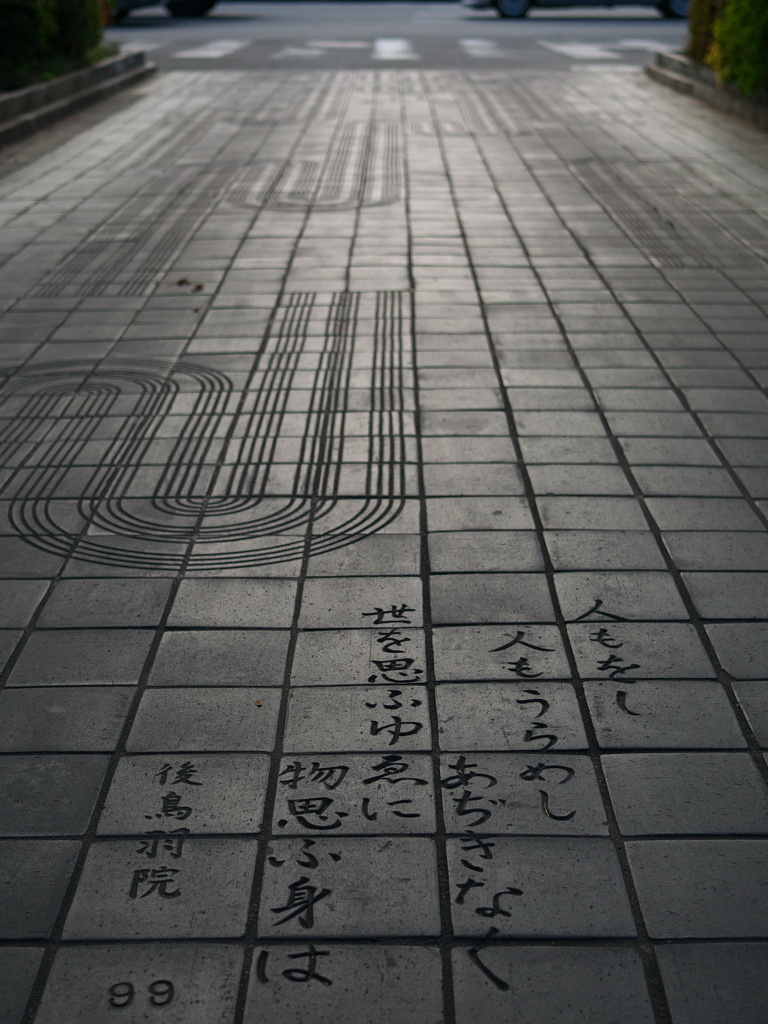 人もをし
人もうらめし
あぢきなく
世を思ふゆゑに
物思ふ身は
後鳥羽院
99